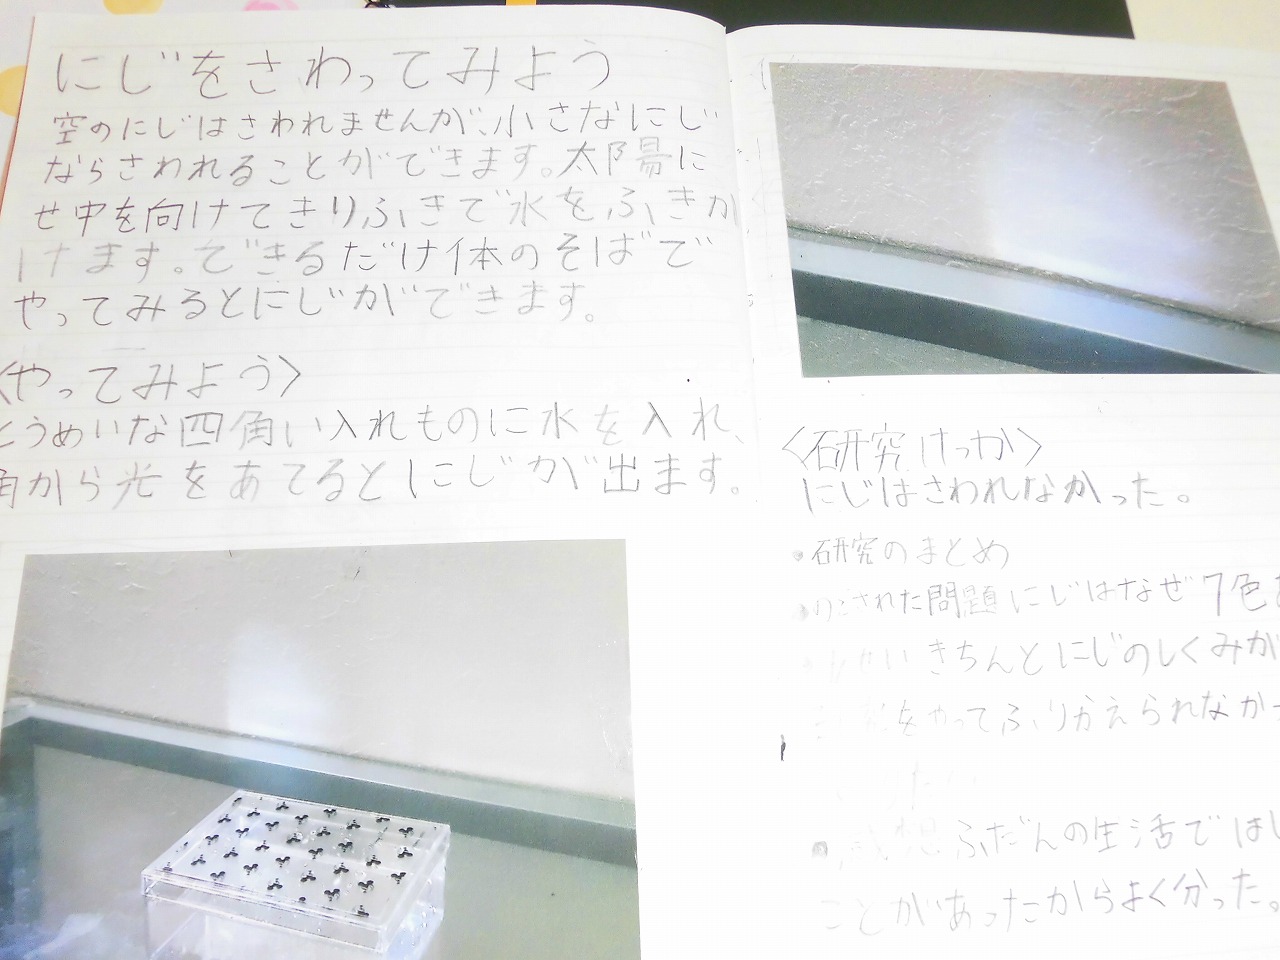 にじをさわってみよう
空のにじはさわれませんが、小さなにじ
ならさわれることができます。太陽に
せ中を向けてきりふきで水をふきか
けます。できるだけ体のそばで
やってみるとにじができます。
〈やってみよう〉
とうめいな四角い入れものに水を入れ、
角から光をあてるとにじが出ます。
〈研究けっか〉
にじはさわれなかった。
・研究のまとめ
のこされた問題にじはなぜ7色
きちんとにじのしくみが
をやってふりかえられなかっ
・感想ふだんの生活では
ことがあったからよく分った。